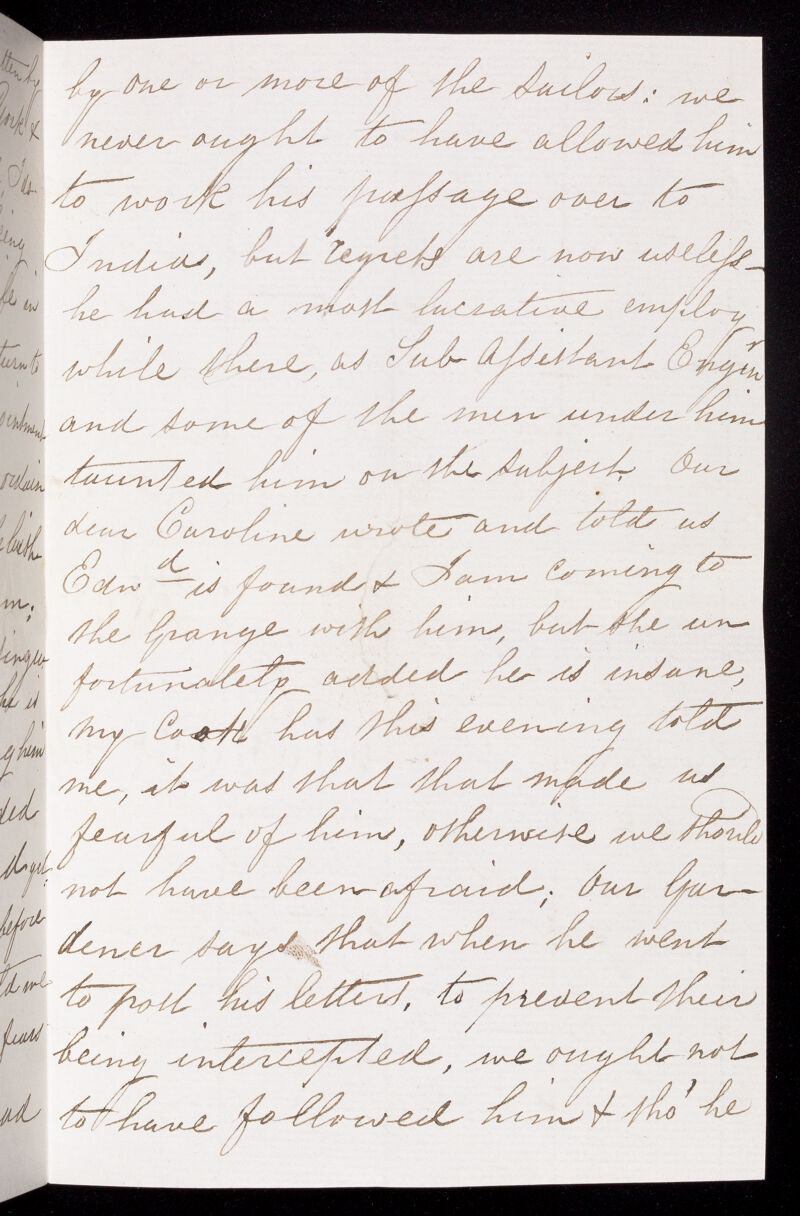 by one or more of the sailors: we
never ought to have allowed him
to work his passage over to
India, but regrets are now useless_
he had a most lucrative employ
while there, as Sub Assistant Engin^r
and some of the men under him
taunted him on the subject. Our
dear Caroline wrote and told us
Edw^d is found & I am coming to
the Grange with him, but she un
fortunately added he is insane,
my Cook has this evening told
me, it was that that made us
fearful of him, otherwise we should
not have been afraid; Our Gar-
dener says that when he went
to post his letters, to prevent their
being intercepted, we ought not
to have followed him & tho' he